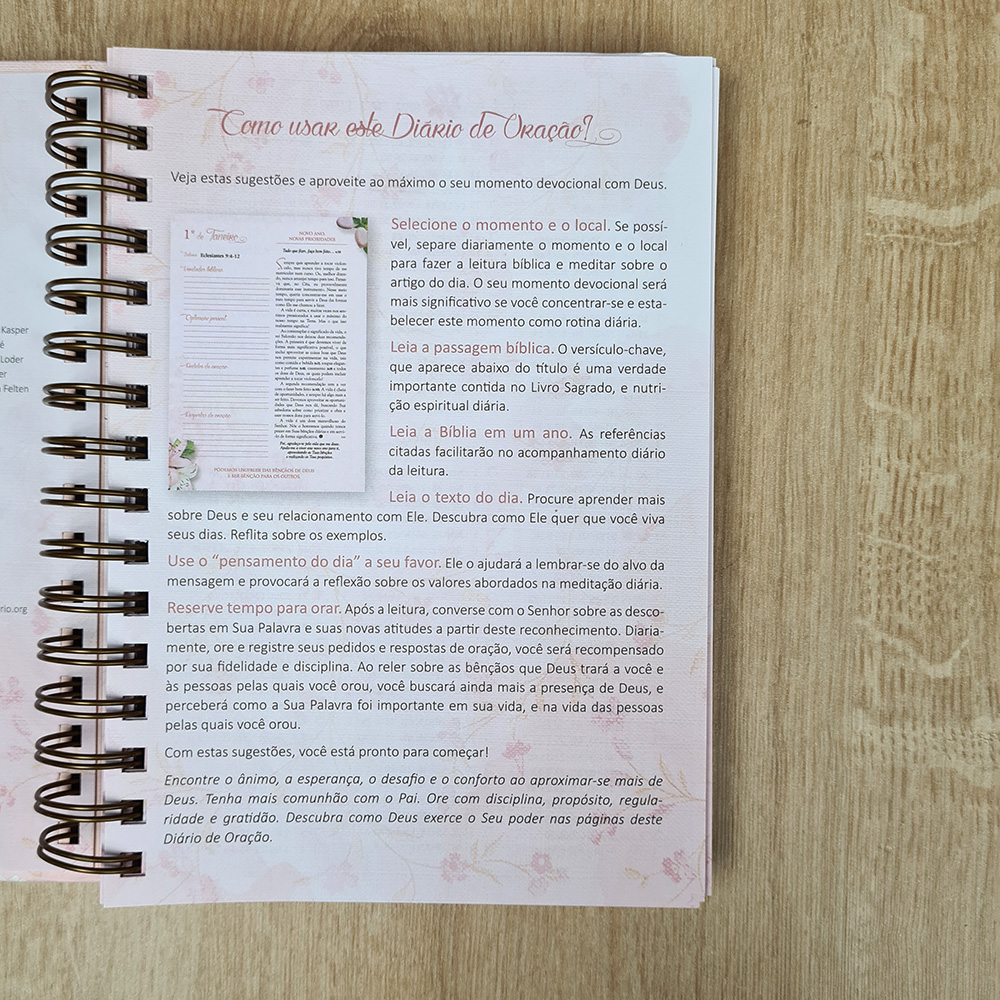 Kasper
Loder
Felten
rio.org
Como usar este Diário de Oração?
Veja estas sugestões e aproveite ao máximo o seu momento devocional com Deus.
1º de Janeiro
NOVO ANO,
NOVAS PRIORIDADES
Eclesiastes 9:4-12
PODEMOS USUFRUIR DAS BÊNÇÃOS DE DEUS
E SER BENÇÃO PARA OS OUTROS.
Selecione o momento e o local. Se possí-
vel, separe diariamente o momento e o local
para fazer a leitura bíblica e meditar sobre o
artigo do dia. O seu momento devocional será
mais significativo se você concentrar-se e esta-
belecer este momento como rotina diária.
Leia a passagem bíblica. O versículo-chave,
que aparece abaixo do título é uma verdade
importante contida no Livro Sagrado, e nutri-
ção espiritual diária.
Leia a Bíblia em um ano. As referências
citadas facilitarão no acompanhamento diário
da leitura.
Leia o texto do dia. Procure aprender mais
sobre Deus e seu relacionamento com Ele. Descubra como Ele quer que você viva
seus dias. Reflita sobre os exemplos.
Use o “pensamento do dia” a seu favor. Ele o ajudará a lembrar-se do alvo da
mensagem e provocará a reflexão sobre os valores abordados na meditação diária.
Reserve tempo para orar. Após a leitura, converse com o Senhor sobre as desco-
bertas em Sua Palavra e suas novas atitudes a partir deste reconhecimento. Diaria-
mente, ore e registre seus pedidos e respostas de oração, você será recompensado
por sua fidelidade e disciplina. Ao reler sobre as bênçãos que Deus trará a você e
às pessoas pelas quais você orou, você buscará ainda mais a presença de Deus, e
perceberá como a Sua Palavra foi importante em sua vida, e na vida das pessoas
pelas quais você orou.
Com estas sugestões, você está pronto para começar!
Encontre o ânimo, a esperança, o desafio e o conforto ao aproximar-se mais de
Deus. Tenha mais comunhão com o Pai. Ore com disciplina, propósito, regula-
ridade e gratidão. Descubra como Deus exerce o Seu poder nas páginas deste
Diário de Oração.